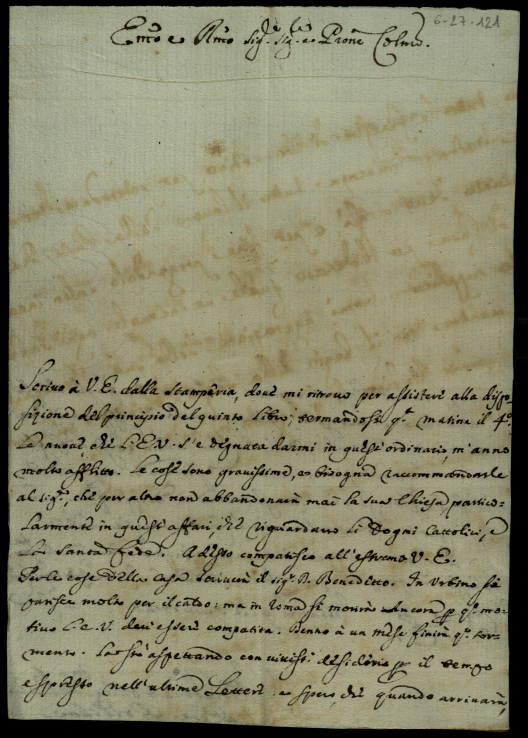 6-27-121
Emo e Rmo Sigr Sigr e Prone Colmo.
Scrivo à V. E. dalla stamparia, dove mi ritrovo per assistere alla dispo
sizione del principio del quinto libro, termandosi qta matina il 4º.
Le nuove che l'E. V. s'è degnata darmi in quest'ordinario, m'anno
molto afflitto. Le cose sono gravissime, e bisogna raccommandarle
al Sigre, che per altro non abbandonarà mai la sua Chiesa, partico-
larmente in questi affari che riguardano li Dogni Cattolici, e
la Santa Fede. Adesso compatisco all'estremo V. E.
Per le cose della casa scriverà il Sigr D. Benedetto. In Urbino si
patisce molto per il caldo: ma in Roma si morirà. Ancora p qto mo-
tivo l'E. V. devi esser compatita. Benno à un mese finirà qto tor-
mento. La stò aspettando con vivissi desiderio pr il tempo
espresso nell'ultime lettere: e spero, che quando arrivarà,